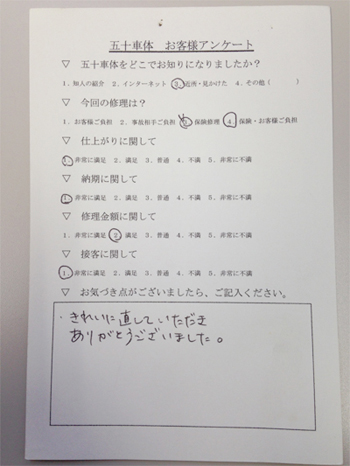 五十車体 お客様アンケート
▽ 五十車体をどこでお知りになりましたか？
1．知人の紹介 2．インターネット 3．近所・見かけた 4．その他（ ）
▽ 今回の修理は？
1．お客様ご負担 2．事故相手ご負担 3．保険修理 4．保険・お客様ご負担
▽ 仕上がりに関して
1．非常に満足 2．満足 3．普通 4．不満 5．非常に不満
▽ 納期に関して
1．非常に満足 2．満足 3．普通 4．不満 5．非常に不満
▽ 修理金額に関して
1．非常に満足 2．満足 3．普通 4．不満 5．非常に不満
▽ 接客に関して
1．非常に満足 2．満足 3．普通 4．不満 5．非常に不満
▽ お気づき点がございましたら、ご記入ください。
・きれいに直していただき
ありがとうございました。